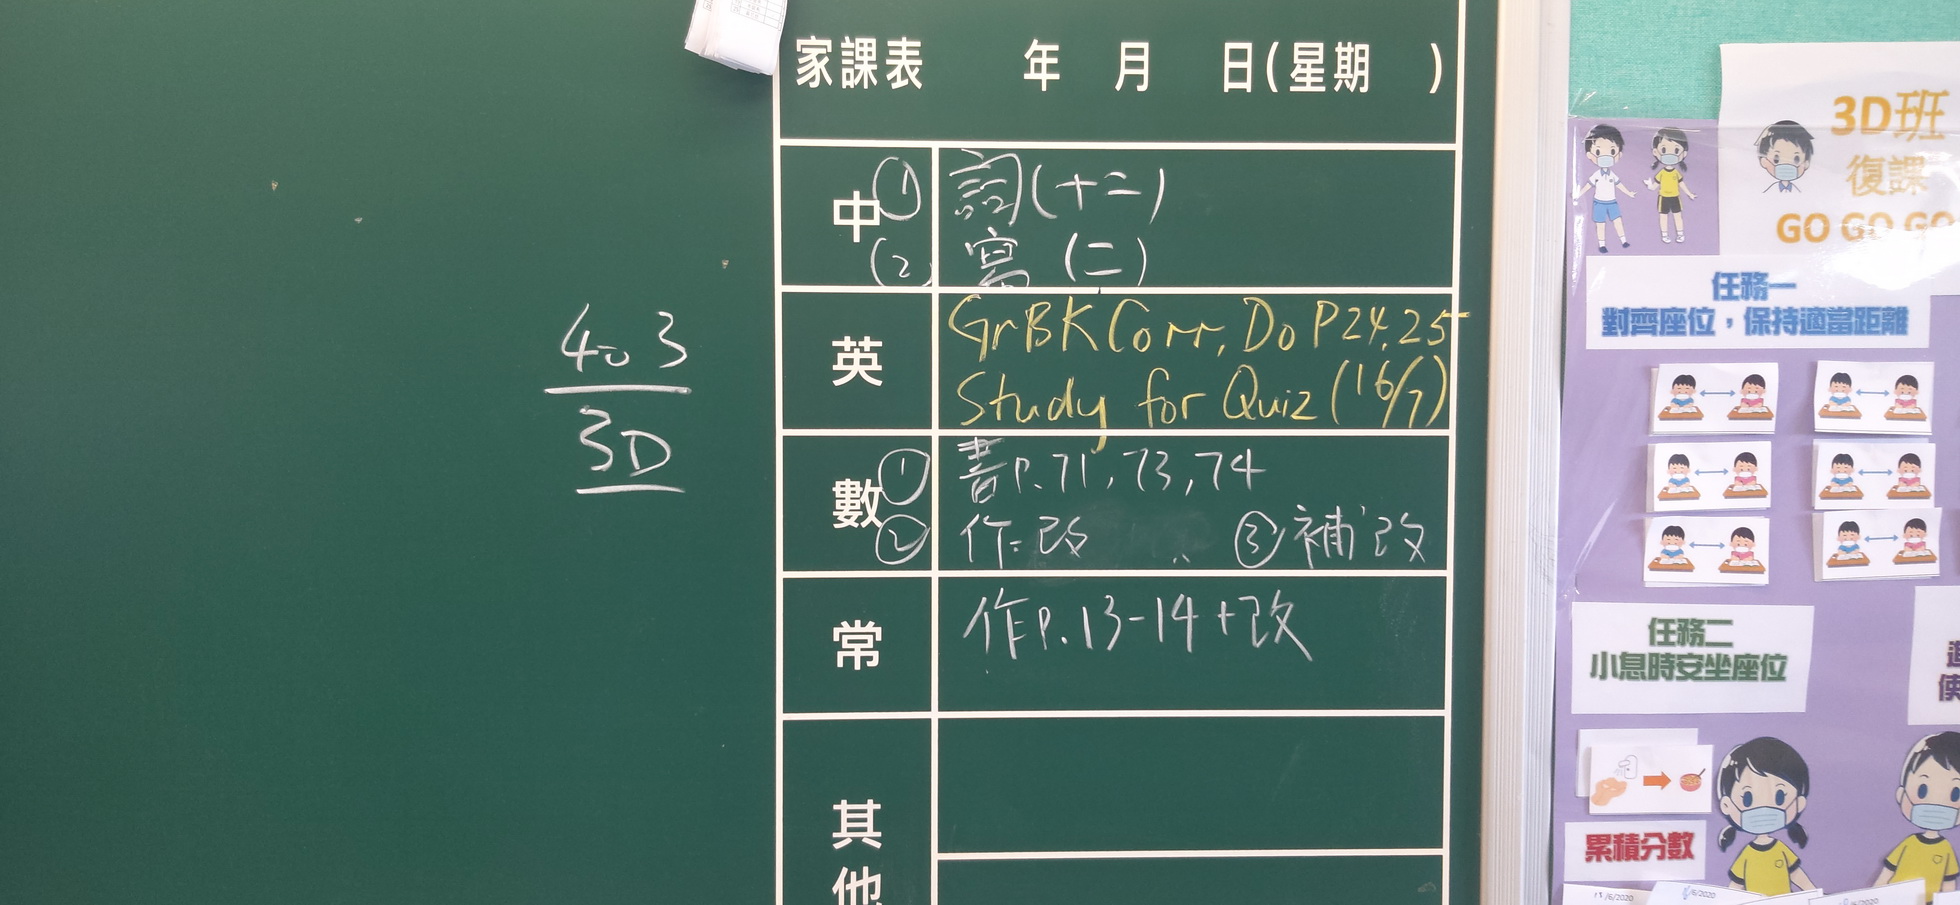 家課表 年 月 日(星期 )
中 ① 詞(十二)
② 寫 (二)
英 GrBK Corr, Do P24,25
Study for Quiz (16/7)
數 ① 書P.71,73,74
② 作:改 ③補改
常 作P.13-14+改
其他
403
3D
3D班
復課
GO GO GO
任務一
對齊座位，保持適當距離
任務二
小息時安坐座位
累積分數
/6/2020
/6/2020
/6/2020